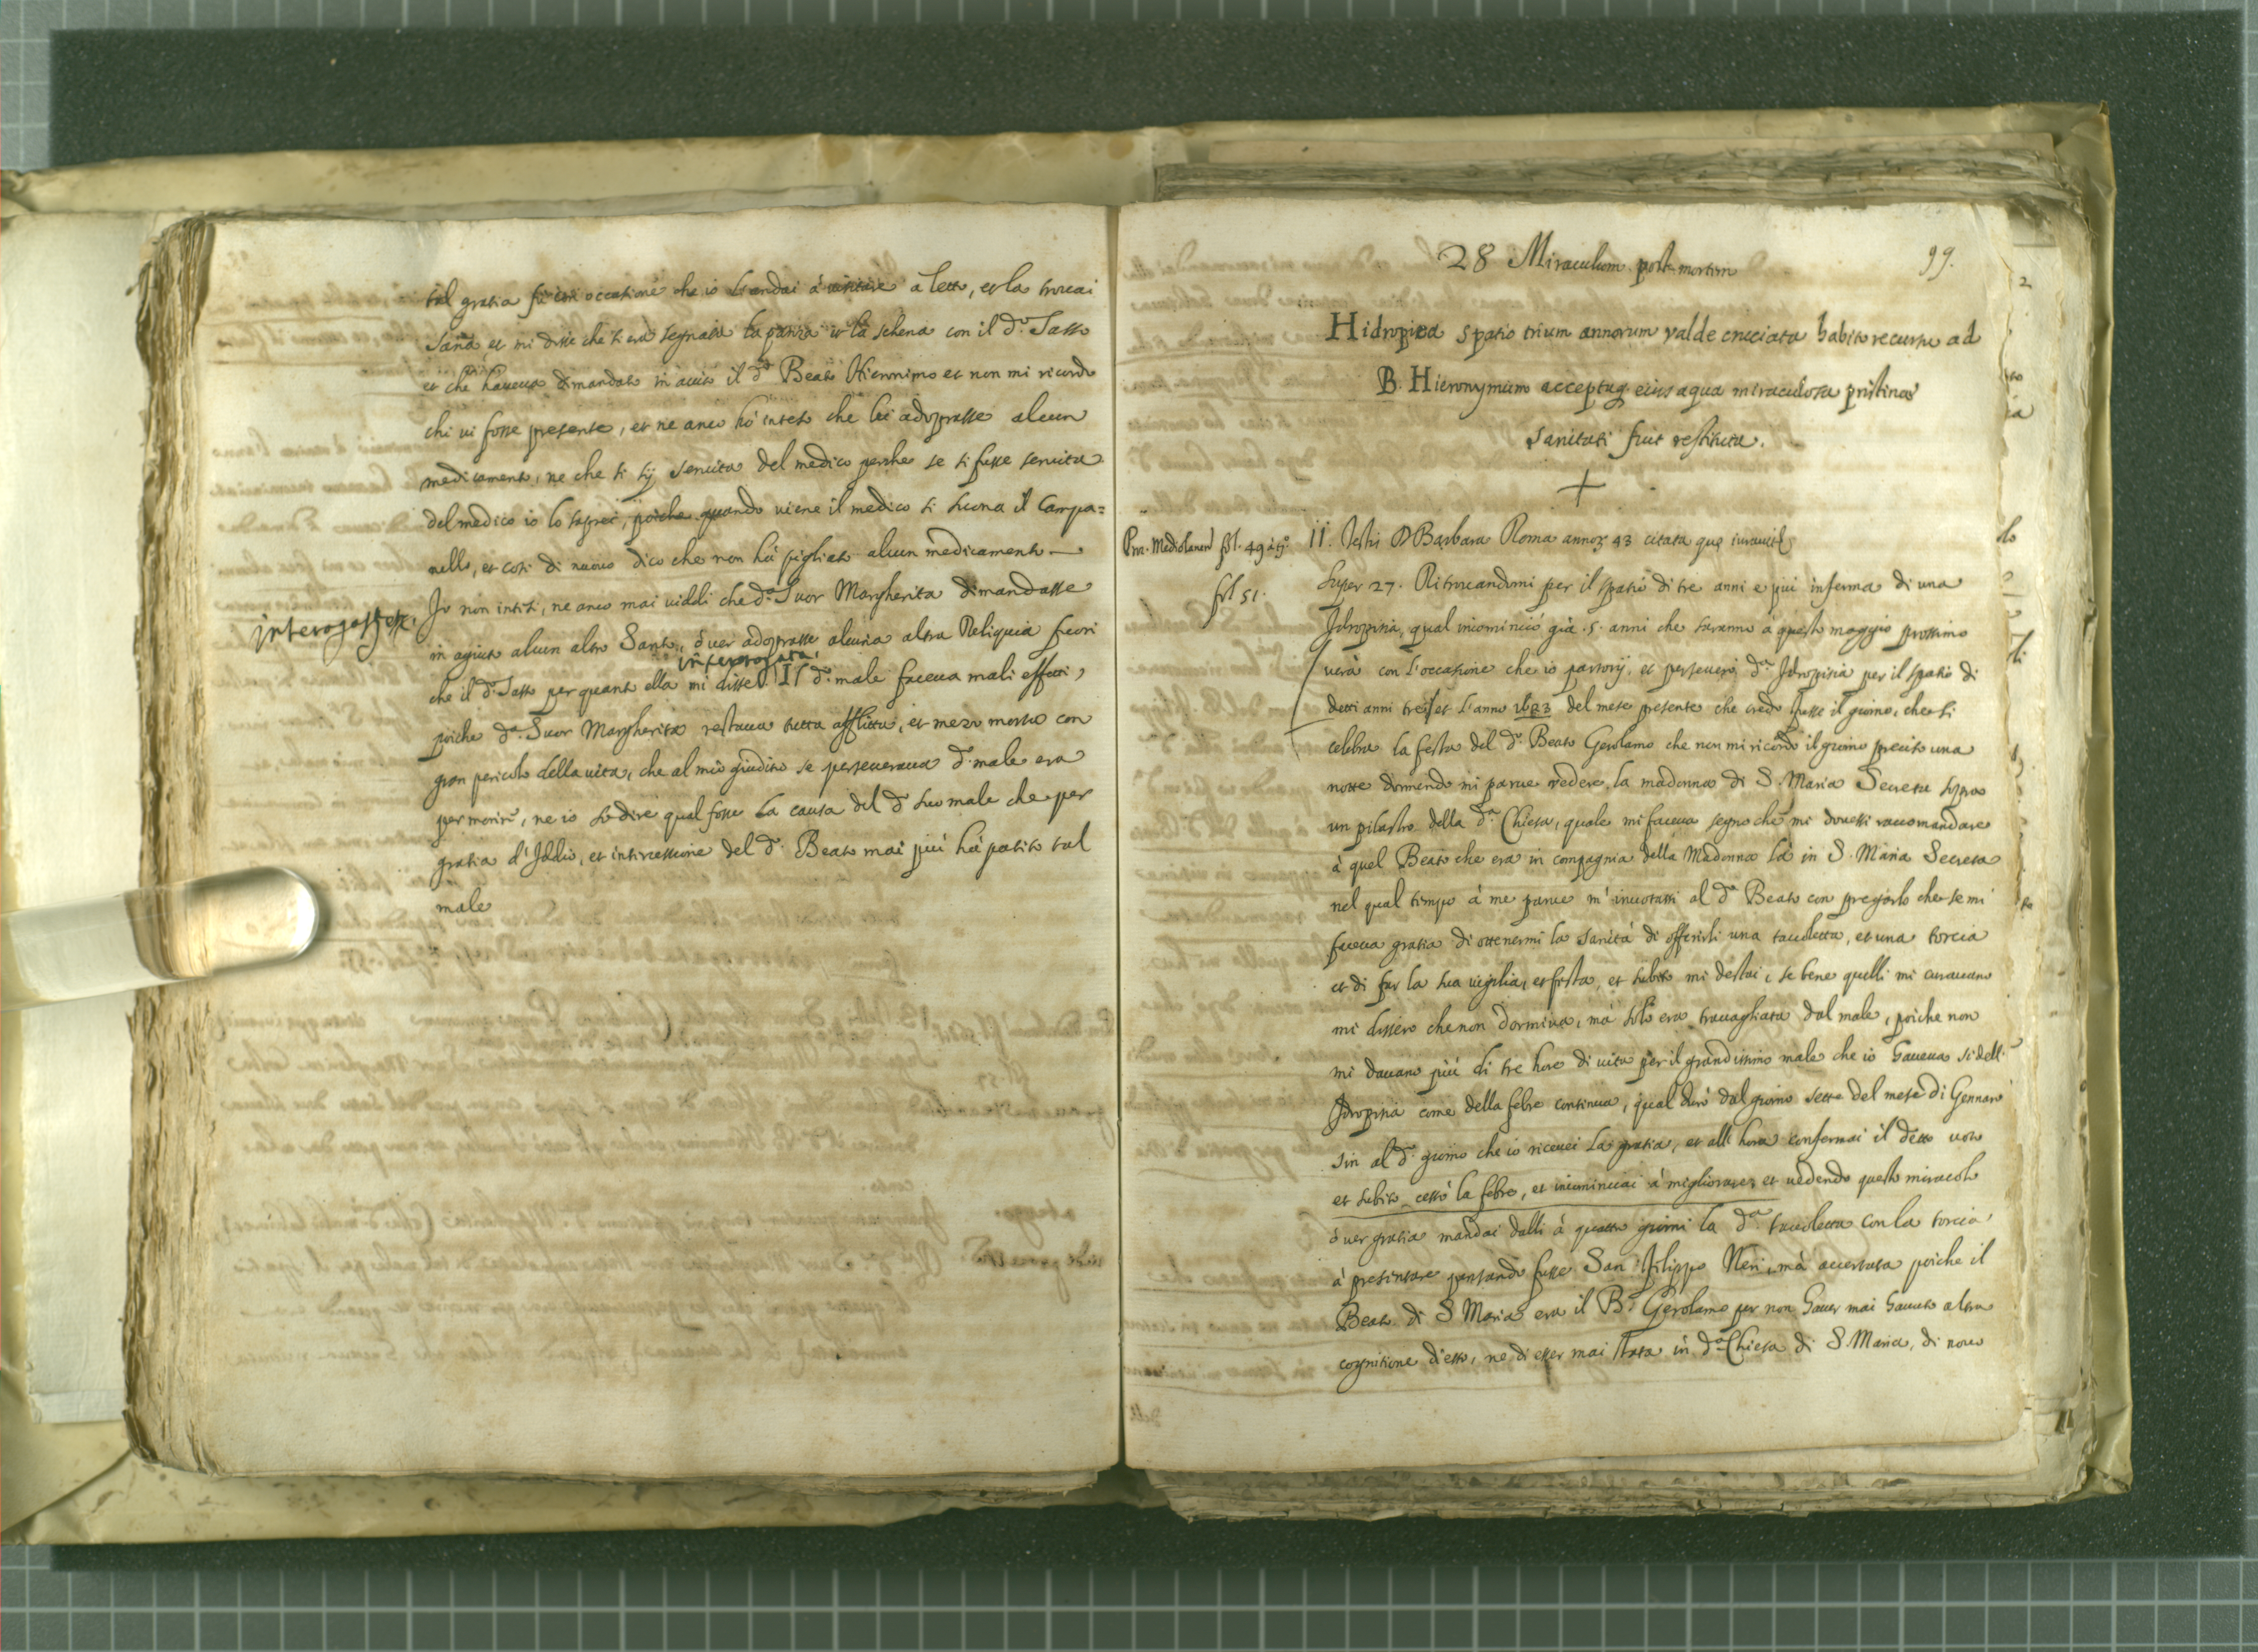 tal gratia fù con occasione che io l'andai à visitare a letto, et la trovai
sana et mi disse che si era segnata la panza et la schena con il d.º Sasso
et che haveva dimandato in aiuto il d.º Beato Hieronimo et non mi ricordo
chi vi fosse presente, et ne anco hò inteso che lei adoprasse alcun
medicamento, ne che si sij servita del medico perche se si fusse servita
del medico io lo saprei, poiche quando viene il medico si suona il Campa=
nello, et così di nuovo dico che non hà pigliato alcun medicamento
interogat
Io non intesi, ne anco mai viddi che d.ª Suor Margherita dimandasse
in agiuto alcun altro Santo, ò ver adoprasse alcuna altra Reliquia fuori
interrogata,
che il d.º Sasso per quanto ella mi disse Il d.º male faceva mali effetti,
poiche d.ª Suor Margherita restava tutta afflitta, et mezo morta con
gran pericolo della vita, che al mio giuditio se perseverava d.º male era
per morire, ne io sò dire qual fosse la causa del d.º suo male che per
gratia d'Iddio, et intircessione del d.º Beato mai più hà patito tal
male
99.
28 Miraculum post mortem
Hidropica spatio trium annorum valde cruciata habito recursu ad
B. Hieronymum acceptaq eius aqua miraculosa pristina
sanitati fuit restituta.
Pro. Mediolanen fol. 49 à tº
fol 51.
11. Testis D Barbara Roma annoȝ 43 citata que iuravit
super 27. Ritrovandomi per il spatio di tre anni e più inferma di una
Idropisia, qual incominciò già .5. anni che saranno à questo maggio prossimo
verà con l'occasione che io partorij, et perseverò d.ª Idropisia per il spatio di
detti anni trei, et l'anno 1623 del mese presente che credo fusse il giorno, che si
celebra la festa del d.º Beato Gerolamo che non mi ricordo il giorno preciso una
notte dormendo mi parve vedere la madonna di S. Maria Secreta sopra
un pilastro della d.ª Chiesa, quale mi faceva segno che mi dovessi raccomandare
à quel Beato che era in compagnia della Madonna là in S. Maria Secreta
nel qual tempo à me parve m'invotassi al d.º Beato con pregarlo che se mi
faceva gratia di ottenermi la sanità di offerirli una tavoletta, et una torcia
et di far la sua vigilia, et festa, et subito mi destai, se bene quelli mi curavano
mi dissero che non dormiva, mà solo era travagliata dal male, poiche non
mi davano più di tre hore di vita per il grandissimo male che io haveva si dell'
Idropisia come della febre continua, qual durò dal giorno sette del mese di Gennaro
sin al d.º giorno che io ricevei la gratia, et all'hora confermai il detto voto
et subito cessò la febre, et incominciai à migliorare, et vedendo questo miracolo
ò ver gratia mandai dalli à quattro giorni la d.ª tavoletta con la torcia,
à presentare pensando fusse San Filippo Neri, mà accertata poiche il
Beato di S Maria era il B.º Gerolamo per non haver mai havuto altra
cognitione d'esso, ne di esser mai stata in d.ª Chiesa di S. Maria, di novo